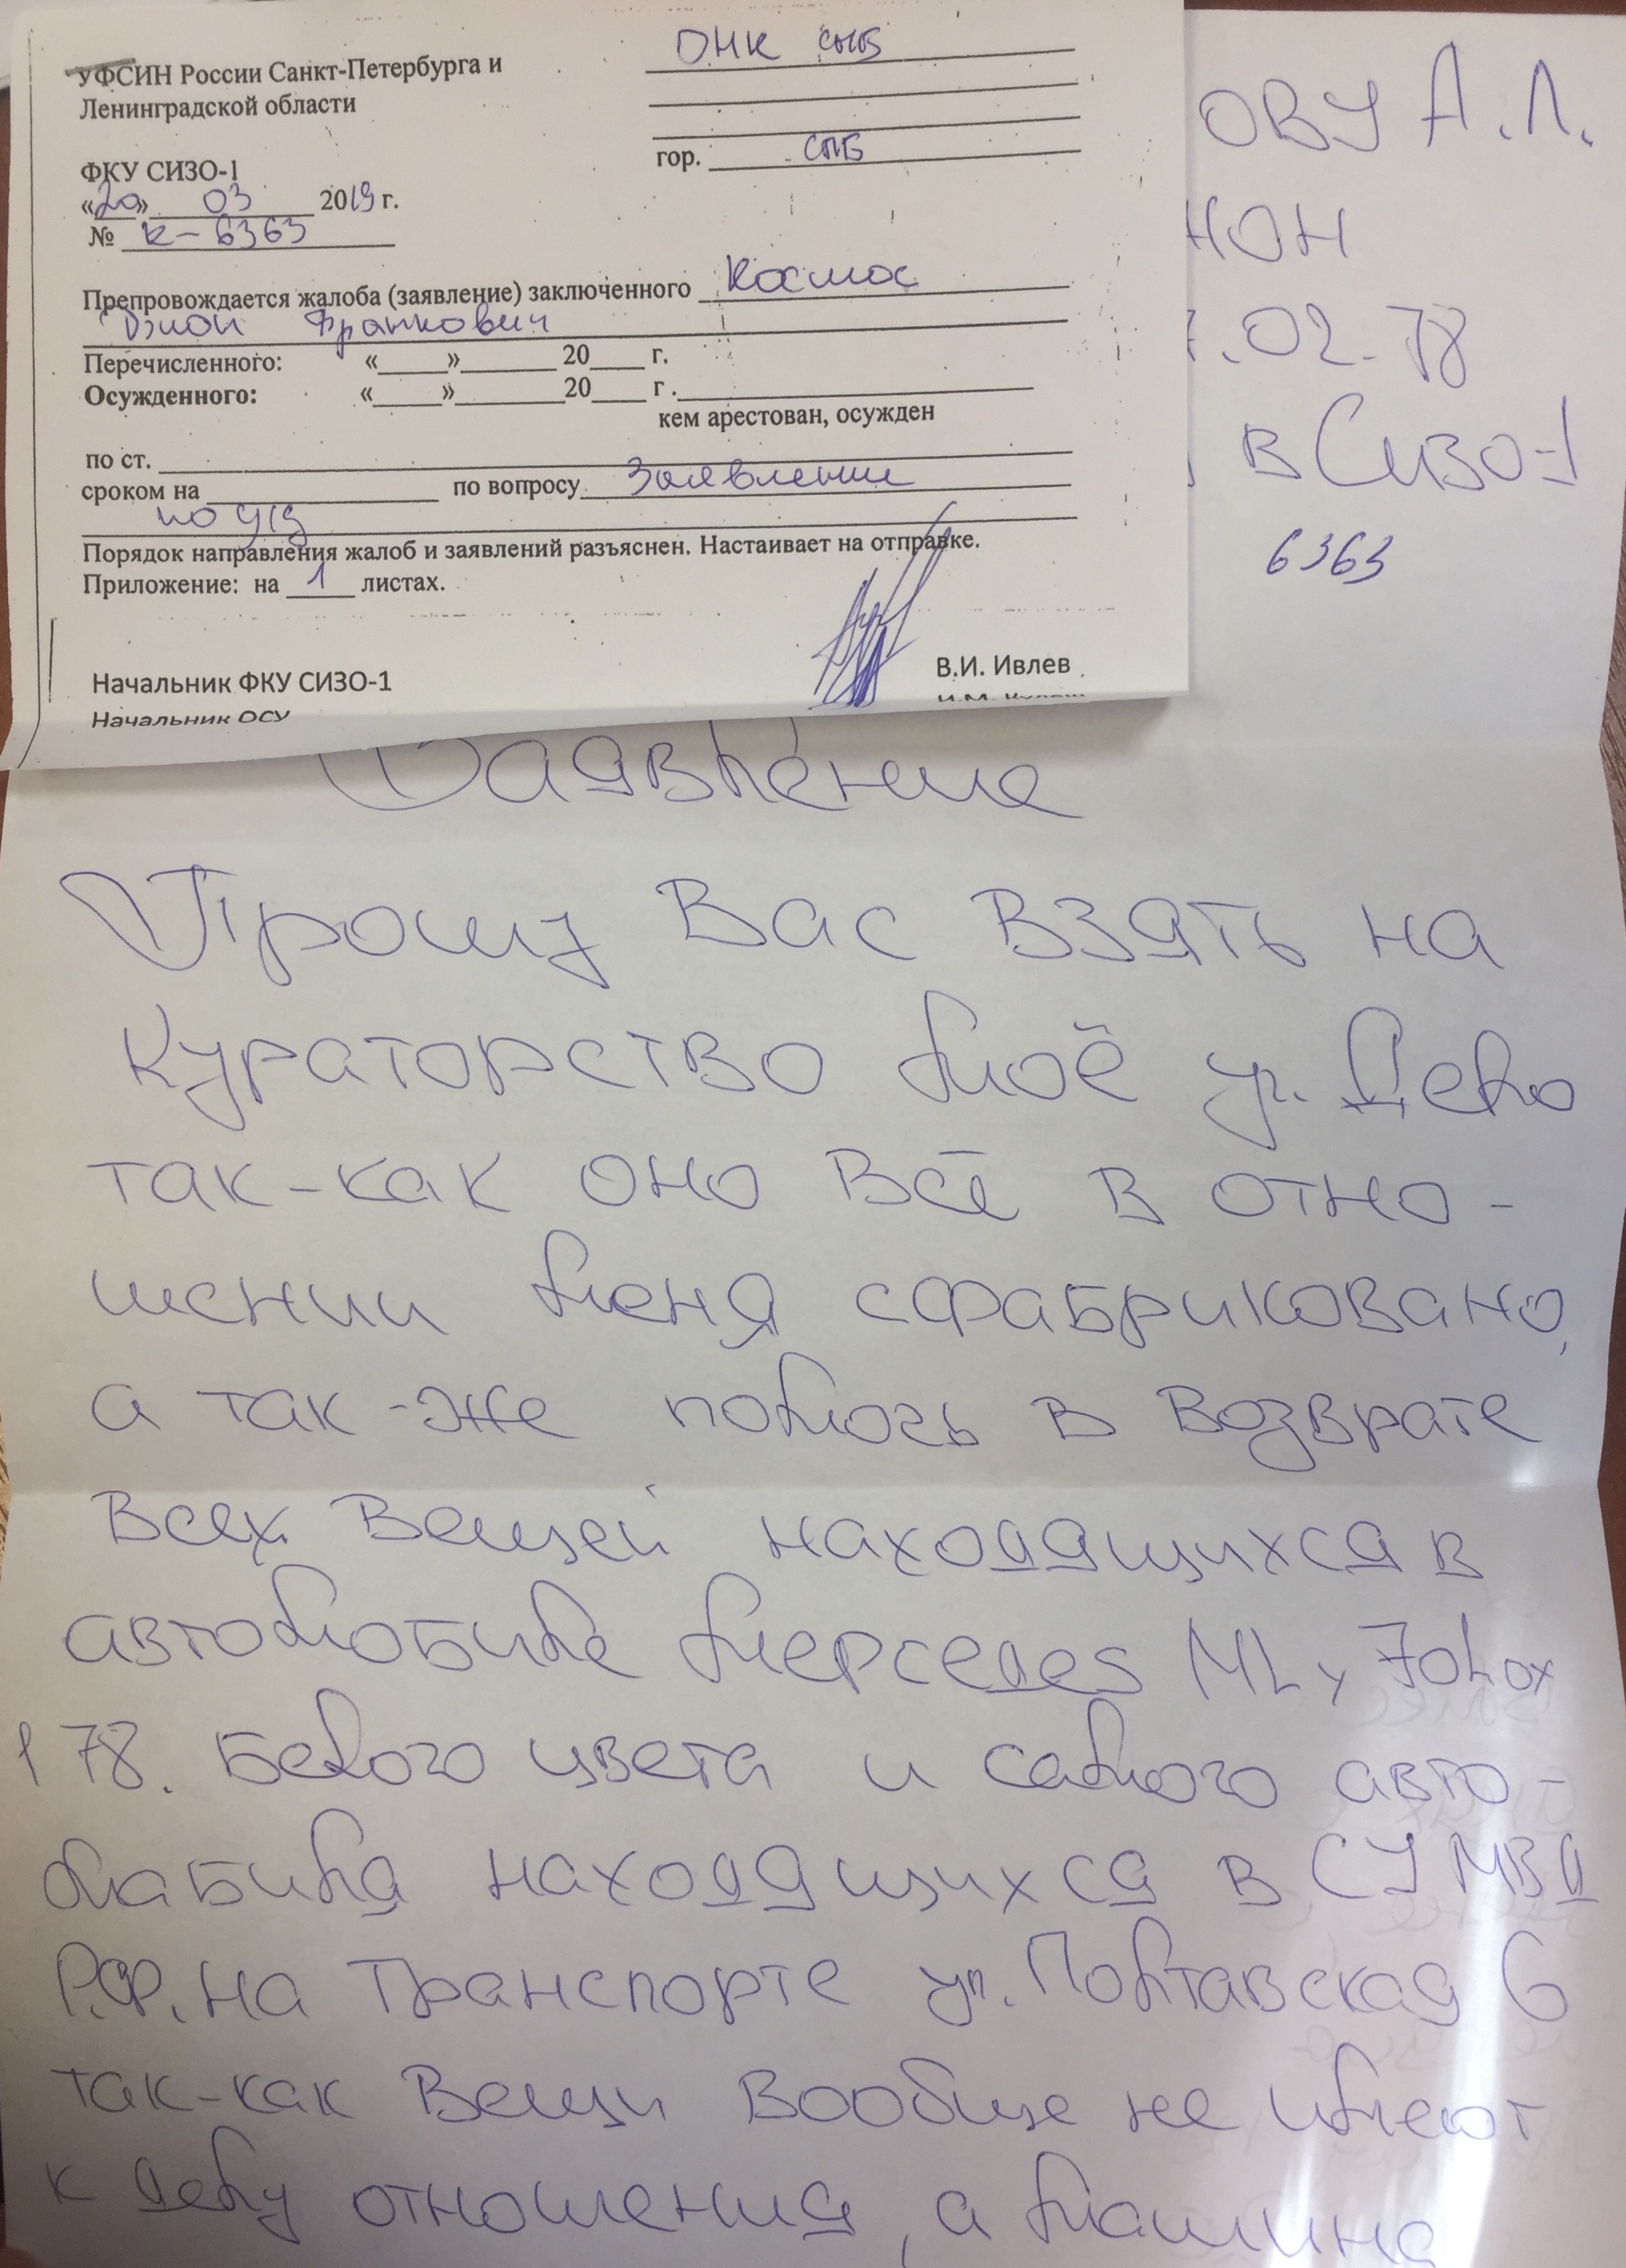 УФСИН России Санкт-Петербурга и
Ленинградской области
ОНК СПБ
гор. СПБ
ФКУ СИЗО-1
«20» 03 2019 г.
№ К-6363
Препровождается жалоба (заявление) заключенного Космос
Джон Франкович
Перечисленного: «_____»_______20____г.
Осужденного: «_____»________20____г.
кем арестован, осужден
по ст.
сроком на по вопросу Заявление
по у/д
Порядок направления жалоб и заявлений разъяснен. Настаивает на отправке.
Приложение: на 1 листах.
Начальник ФКУ СИЗО-1 В.И. Ивлев
Начальник ОСУ
ОВУ А.Л.
НОН
.02-78
в СИЗО-1
6363
Заявление
Прошу Вас взять на
кураторство моё уг. Дело
так-как оно всё в отно-
шении меня сфабриковано,
а так-же помочь в возврате
всех вещей находящихся в
автомобиле мерседеs ML
178. Белого цвета и самого авто-
мабиля находящихся в СУ МВД
Р.Ф. на Транспорте ул. Полтавская 6
так-как Вещи вообще не имеют
к делу отношения, а машина